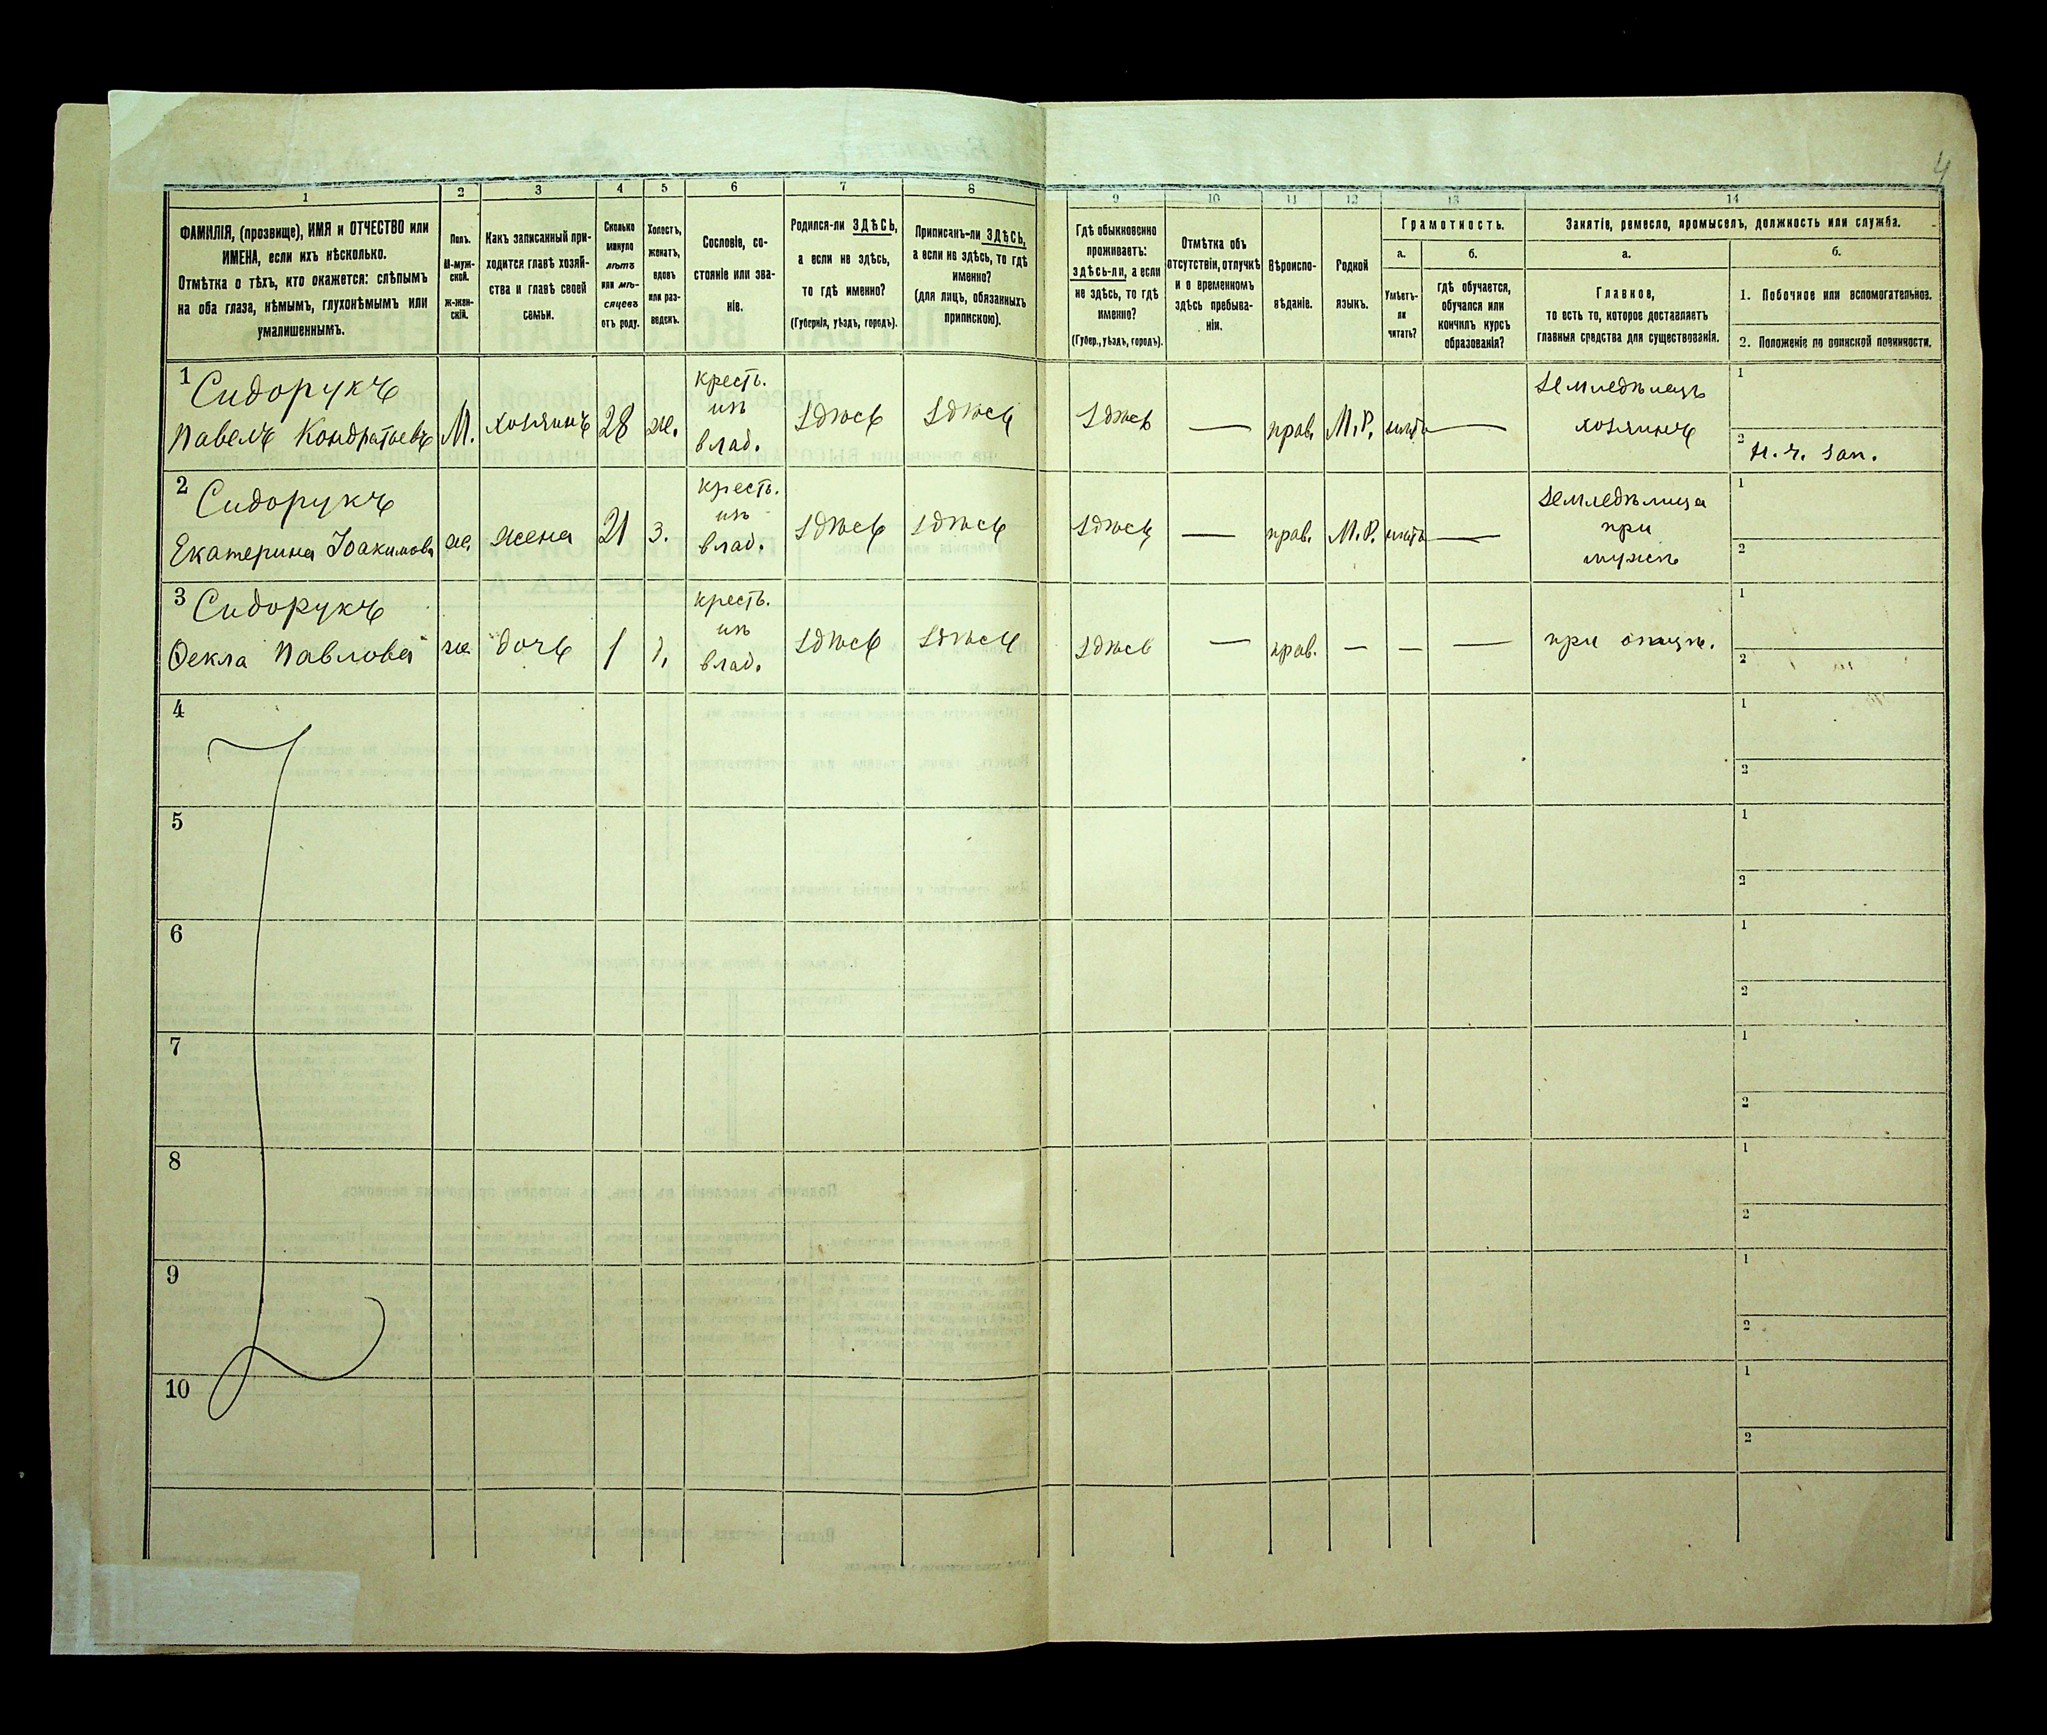 4
1
2
3
4
5
6
7
8
9
10
11
12
13
14
ФАМИЛІЯ, (прозвище), ИМЯ и ОТЧЕСТВО или
ИМЕНА, если ихъ нѣсколько.
Отмѣтка о тѣхъ, кто окажется: слѣпымъ
на оба глаза, нѣмымъ, глухонѣмымъ или
умалишеннымъ.
Полъ.
М-муж-
ской.
ж-жен-
скій.
Какъ записанный при-
ходится главѣ хозяй-
ства и главѣ своей
семьи.
Сколько
минуло
лѣтъ
или мѣ-
сяцевъ
отъ роду.
Холостъ,
женатъ,
вдовъ
или раз-
веденъ.
Сословіе, со-
стояніе или зва-
ніе.
Родился-ли ЗДѢСЬ,
а если не здѣсь,
то гдѣ именно?
(Губернія, уѣздъ, городъ).
Приписанъ-ли ЗДѢСЬ,
а если не здѣсь, то гдѣ
именно?
(для лицъ, обязанныхъ
припискою).
Гдѣ обыкновенно
проживаетъ:
здѣсь-ли, а если
не здѣсь, то гдѣ
именно?
(Губер., уѣздъ, городъ).
Отмѣтка объ
отсутствіи, отлучкѣ
и о временномъ
здѣсь пребыва-
ніи.
Вѣроиспо-
вѣданіе.
Родной
языкъ.
Грамотность.
а.
Умѣетъ-
ли
читать?
б.
гдѣ обучается,
обучался или
кончилъ курсъ
образованія?
Занятіе, ремесло, промыселъ, должность или служба.
а.
Главное,
то есть то, которое доставляетъ
главныя средства для существованія.
б.
1. Побочное или вспомогательное.
2. Положеніе по воинской повинности.
1 Сидорукъ
Павелъ Кондратьевъ
М.
хозяинъ
28
ж.
крест.
изъ
влад.
здѣсь
здѣсь
здѣсь
—
прав.
М.Р.
—
земледѣлецъ
хозяинъ
1
2 н. ч. зап.
2 Сидорукъ
Екатерина Іоакимова
ж.
жена
21
з.
крест.
изъ
влад.
здѣсь
здѣсь
здѣсь
—
прав.
М.Р.
—
земледѣлица
при
мужѣ
1
2
3 Сидорукъ
Ѳекла Павлова
ж.
дочь
1
д.
крест.
изъ
влад.
здѣсь
здѣсь
здѣсь
—
прав.
—
—
—
при отцѣ.
1
2
4
1
2
5
1
2
6
1
2
7
1
2
8
1
2
9
1
2
10
1
2